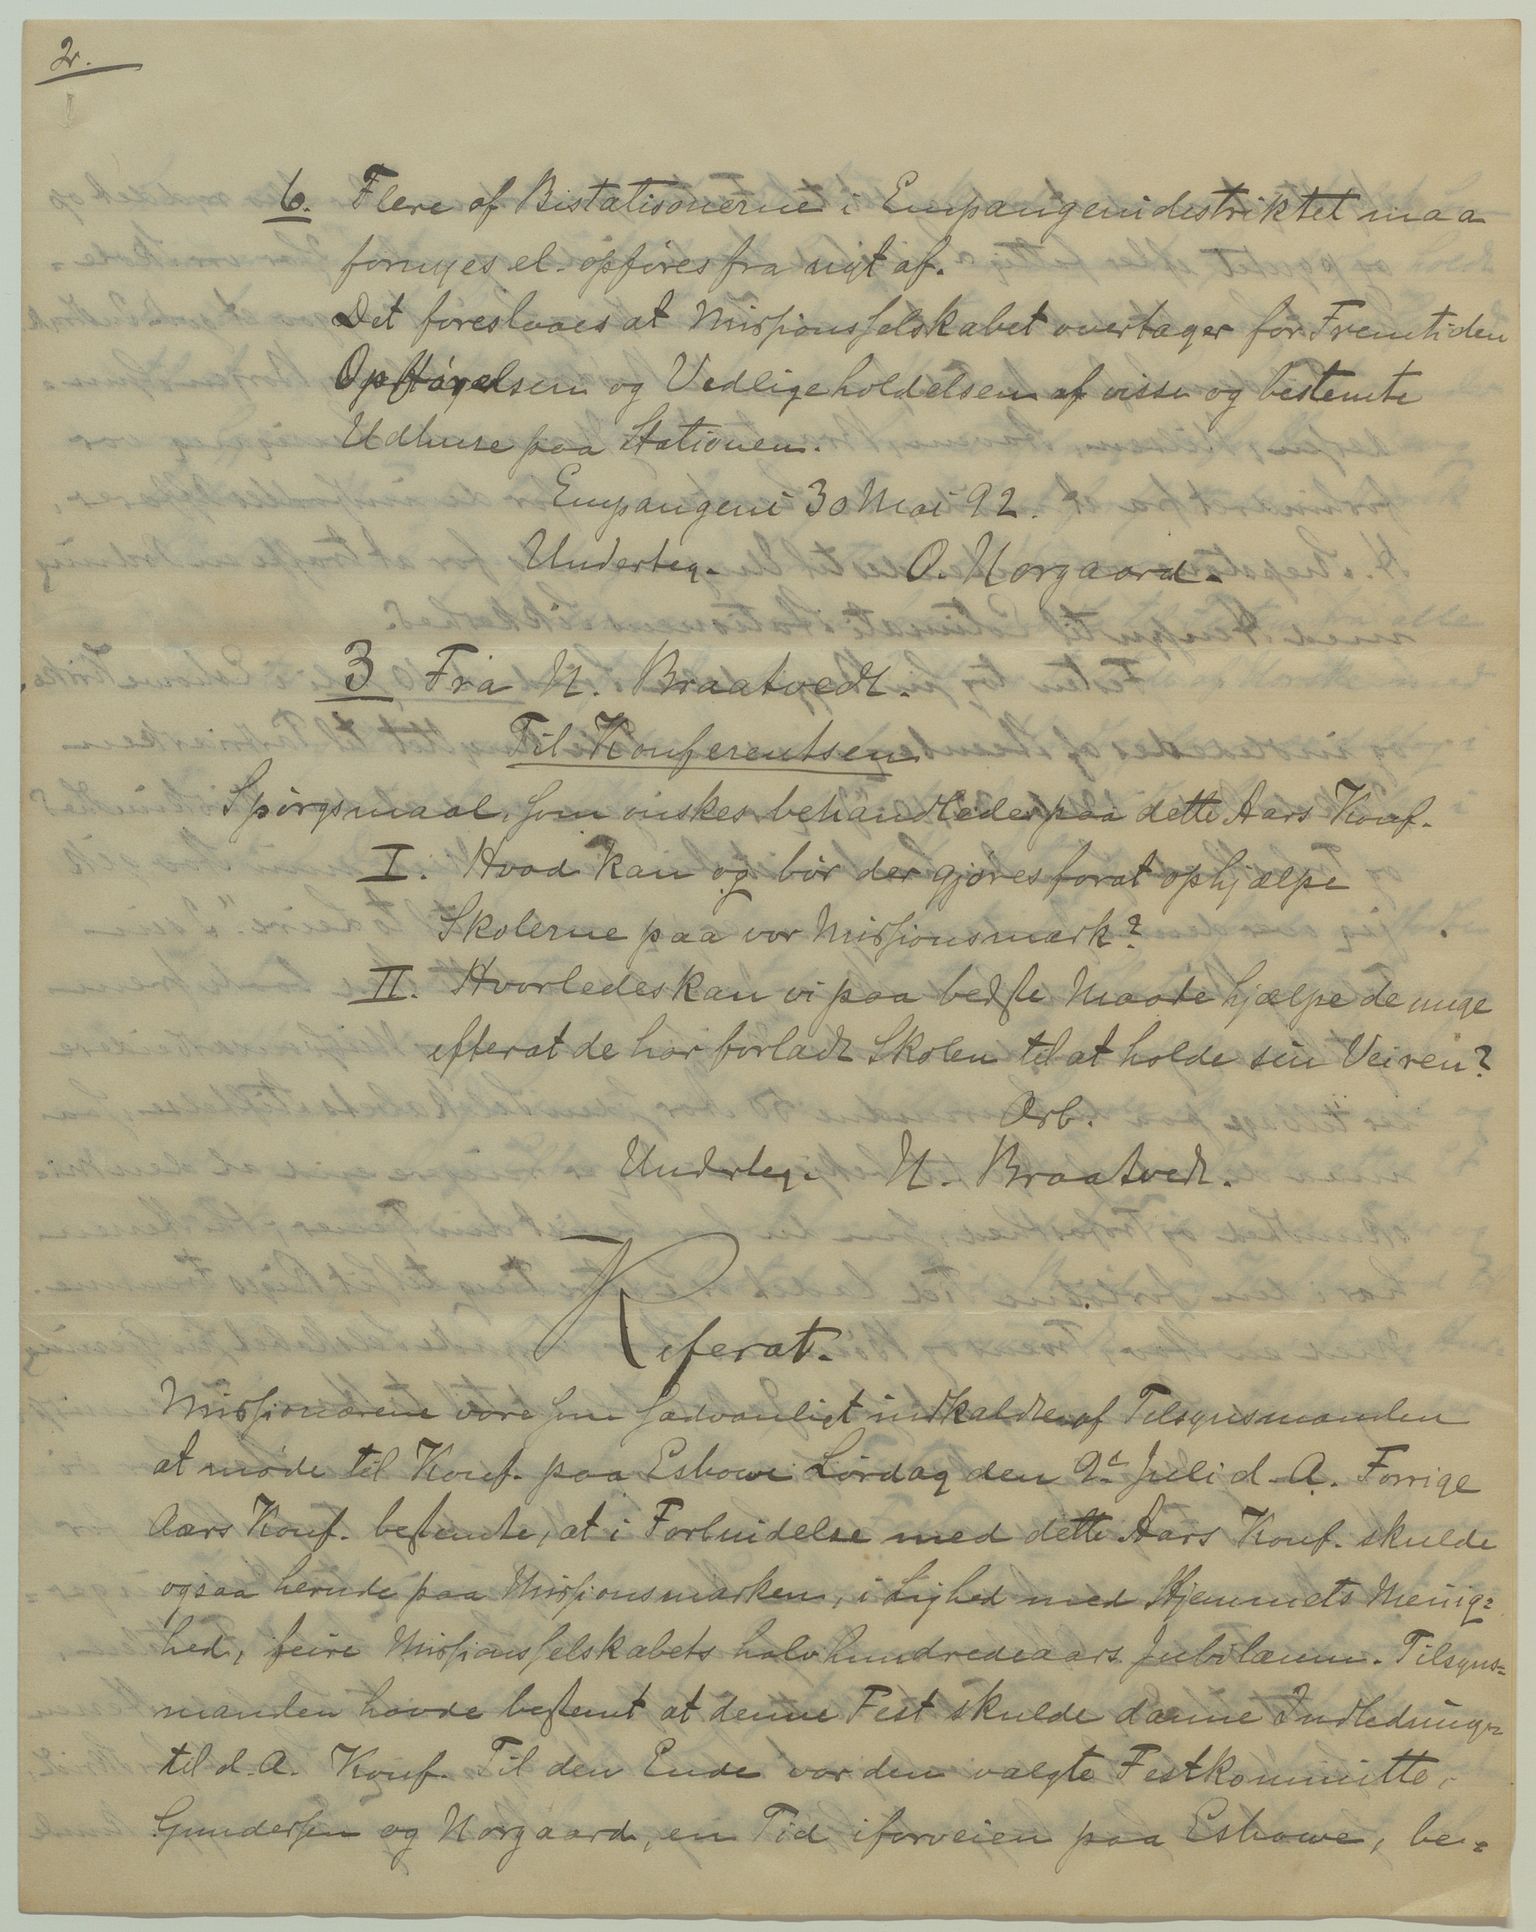 2.
6. Flere af Bistationerne i Empangenidistriktet maa
fornyes el. opføres fra nyt af.
Det foreslaaes at Missionsselskabet overtager for Fremtiden
Opførelsen og Vedligeholdelsen af visse og bestemte
Udhuse paa Stationen.
Empangeni 30 Mai 92.
Underteg. O. Norgaard.
3 Fra N. Braatvedt.
Til Konferentsen
Spørgsmaal, som ønskes behandlede paa dette Aars Konf.
I. Hvad kan og bør der gjøres forat ophjælpe
Skolerne paa vor Missionsmark?
II. Hvorledes kan vi paa bedste Maade hjælpe de unge
efterat de har forladt Skolen til at holde sin Vei ren?
Ærb.
Underteg. N. Braatvedt.
Referat.
Missionærene vare som sædvanligt indkaldte af Tilsynsmanden
at møde til Konf. paa Eshowe Lørdag den 9de Juli d. A. Forrige
Aars Konf. bestemte, at i Forbindelse med dette Aars Konf. skulde
ogsaa herude paa Missionsmarken, i Lighed med Hjemmets Menig=
hed, feire Missionsselskabets halvhundredeaars Jubilæum. Tilsyns=
manden havde bestemt at denne Fest skulde danne Indledning=
til d. A. Konf. Til den Ende var den valgte Festkommitte,
Gundersen og Norgaard, en Tid iforveien paa Eshowe, be=